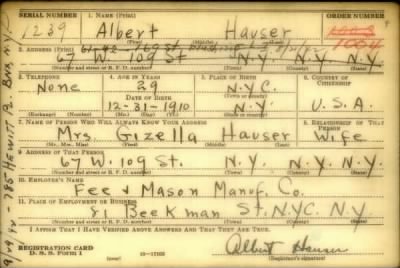 SERIAL NUMBER 1. NAME (Print) ORDER NUMBER
1239 Albert Hauser 1004
(First) (Middle) (Last)
2. ADDRESS (Print)
67 W. 109 St N.Y. N.Y. N.Y.
(Number and street or R. F. D. number) (Town) (County) (State)
3. TELEPHONE 4. AGE IN YEARS 5. PLACE OF BIRTH 6. COUNTRY OF CITIZENSHIP
None 29 N.Y.C.
DATE OF BIRTH
12-31-1910 N.Y. U.S.A.
(Exchange) (Number) (Mo.) (Day) (Yr.) (State or country)
7. NAME OF PERSON WHO WILL ALWAYS KNOW YOUR ADDRESS 8. RELATIONSHIP OF THAT PERSON
Mrs. Gizella Hauser Wife
(Mr., Mrs., Miss) (First) (Middle) (Last)
9. ADDRESS OF THAT PERSON
67 W. 109 St. N.Y. N.Y. N.Y.
(Number and street or R. F. D. number) (Town) (County) (State)
10. EMPLOYER'S NAME
Fee & Mason Manuf. Co.
11. PLACE OF EMPLOYMENT OR BUSINESS
81 Beekman St. NYC. N.Y.
(Number and street or R. F. D. number) (Town) (County) (State)
I AFFIRM THAT I HAVE VERIFIED ABOVE ANSWERS AND THAT THEY ARE TRUE.
REGISTRATION CARD
D. S. S. Form 1 Albert Hauser
(Registrant's signature)
785 HEWITT PL BNX, N.Y.